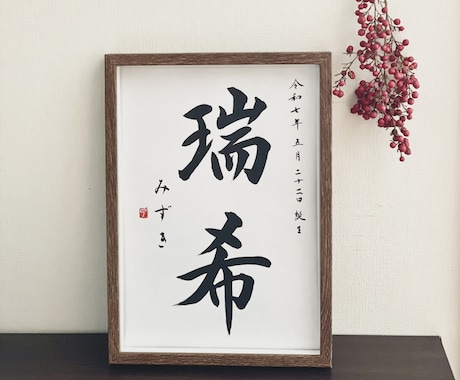 令和七年五月二十二日誕生
瑞希
みずき